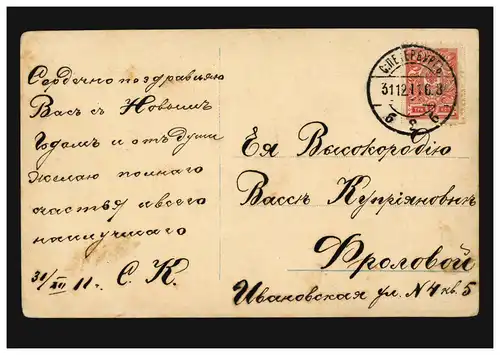 Сердечно поздравляю
Васъ съ Новымъ
Годомъ и отъ души
желаю полнаго
счастья и всего
наилучшаго
31/XII 11г. С. К.
С.ПЕТЕРБУРГЪ
31 12 11
Ея Высокородію
Вассѣ Купріяновнѣ
Фроловой
Ивановская ул. N 4 кв. 5